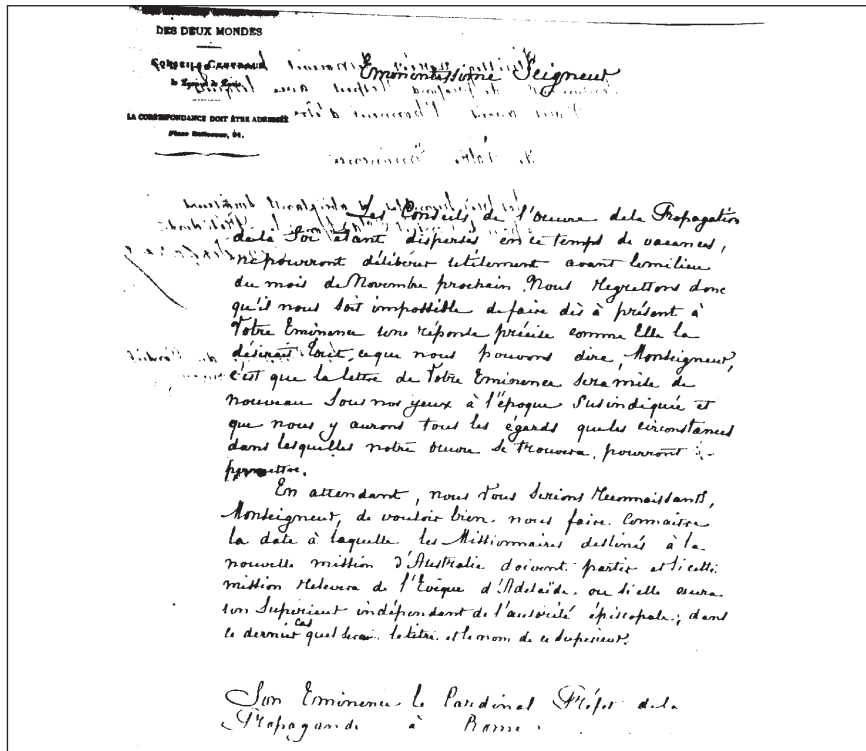 DES DEUX MONDES
CONSEILS CENTRAUX
de Lyon et de Paris
LA CORRESPONDANCE DOIT ÊTRE ADRESSÉE
Place Bellecour, 31.
Eminentissime Seigneur
Les Conseils de l'œuvre de la Propagation
de la Foi étant dispersés en ce temps de vacances,
ne pourront délibérer utilement avant le milieu
du mois de Novembre prochain. Nous regrettons donc
qu'il nous soit impossible de faire dès à présent à
Votre Eminence une réponse précise comme Elle la
désirait. Tout ce que nous pouvons dire, Monseigneur,
c'est que la lettre de Votre Eminence sera mise de
nouveau sous nos yeux à l'époque susindiquée et
que nous y aurons tous les égards que les circonstances
dans lesquelles notre œuvre se trouvera, pourront
permettre.
En attendant, nous Vous serions reconnaissants,
Monseigneur, de vouloir bien nous faire connaitre
la date à laquelle les Missionnaires destinés à la
nouvelle mission d'Australie doivent partir et si cette
mission relevera de l'Evêque d'Adelaïde ou si elle aura
son Supérieur indépendant de l'autorité épiscopale; dans
ce dernier cas quel sera le titre et le nom de ce Superieur.
Son Eminence le Cardinal Préfet de la
Propagande à Rome.